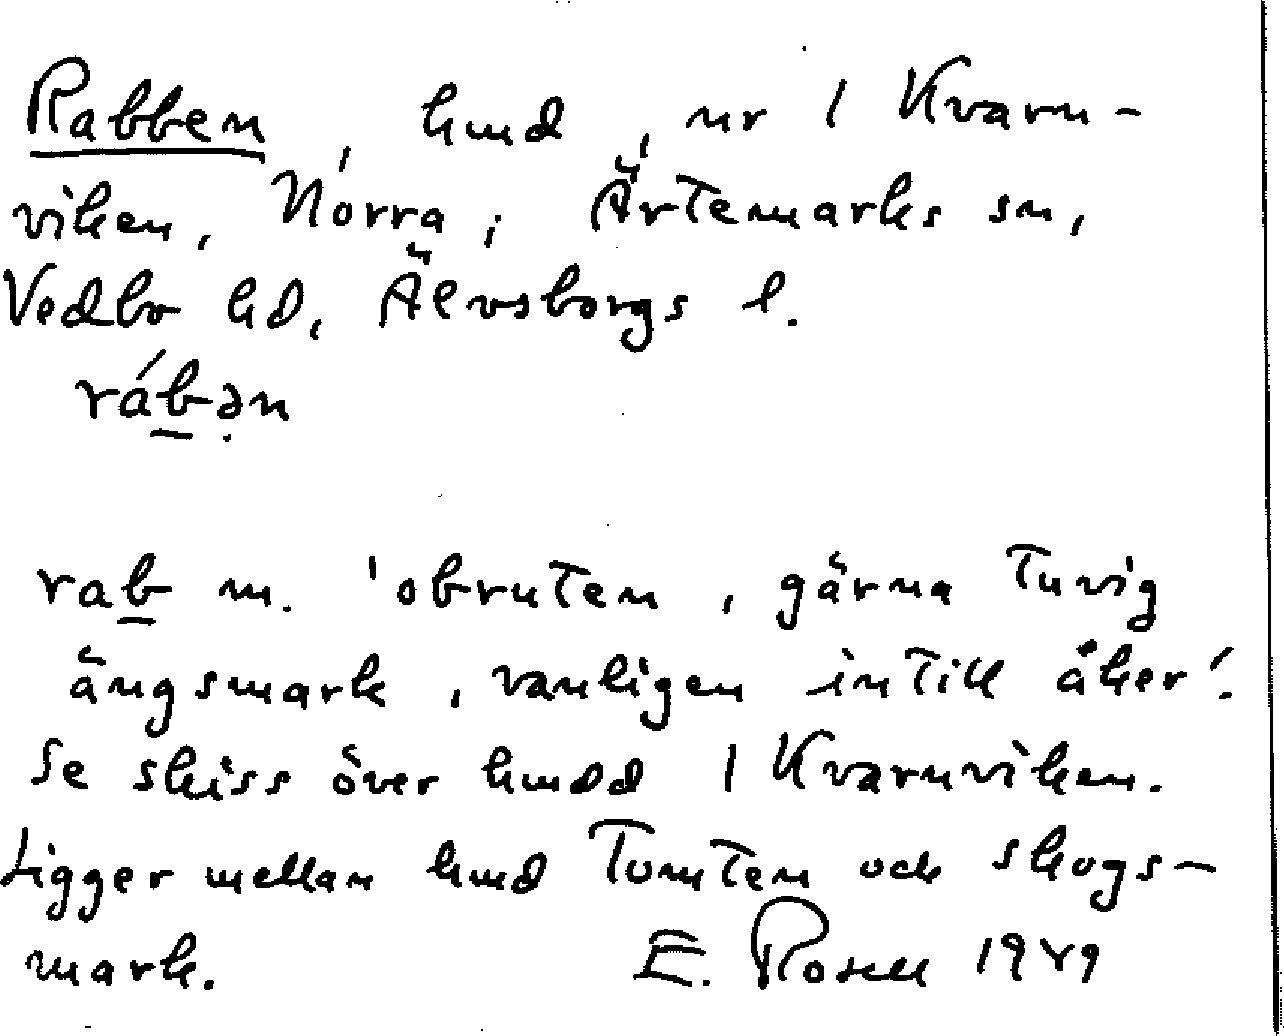 Rabben, hmd, nr 1 Kvarn-
viken, Norra, Ärtemarks sn,
Vedbo hd, Älvsborgs l.
rábə̣n
rab m. 'obruten, gärna tuvig
ängsmark, vanligen intill åker'.
Se skiss över hmdd 1 Kvarnviken.
Ligger mellan hmd Tomten och skogs-
mark. E. Rosell 1949